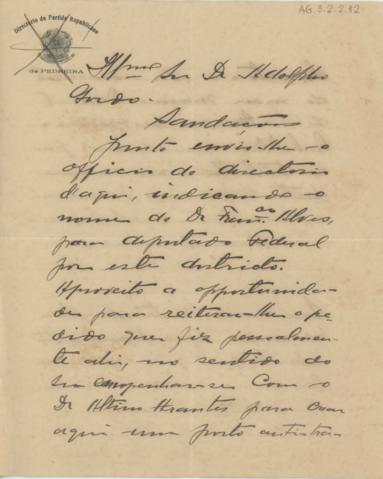 AG.3.2.2.12
Directorio do Partido Republicano
de PEDREIRA
Illmo Sr Dr Adolpho
Gordo.
Saudações
Junto envio-lhe o
officio do directorio
d'aqui, indicando o
nome do Dr Franco Alves,
para deputado Federal
por este districto.
Aproveito a opportunida-
de para reiterar-lhe o pe-
dido que fiz pessoalmen-
te ahi, no sentido do
Sr empenhar-se com o
Dr Altino Arantes para
aqui um posto